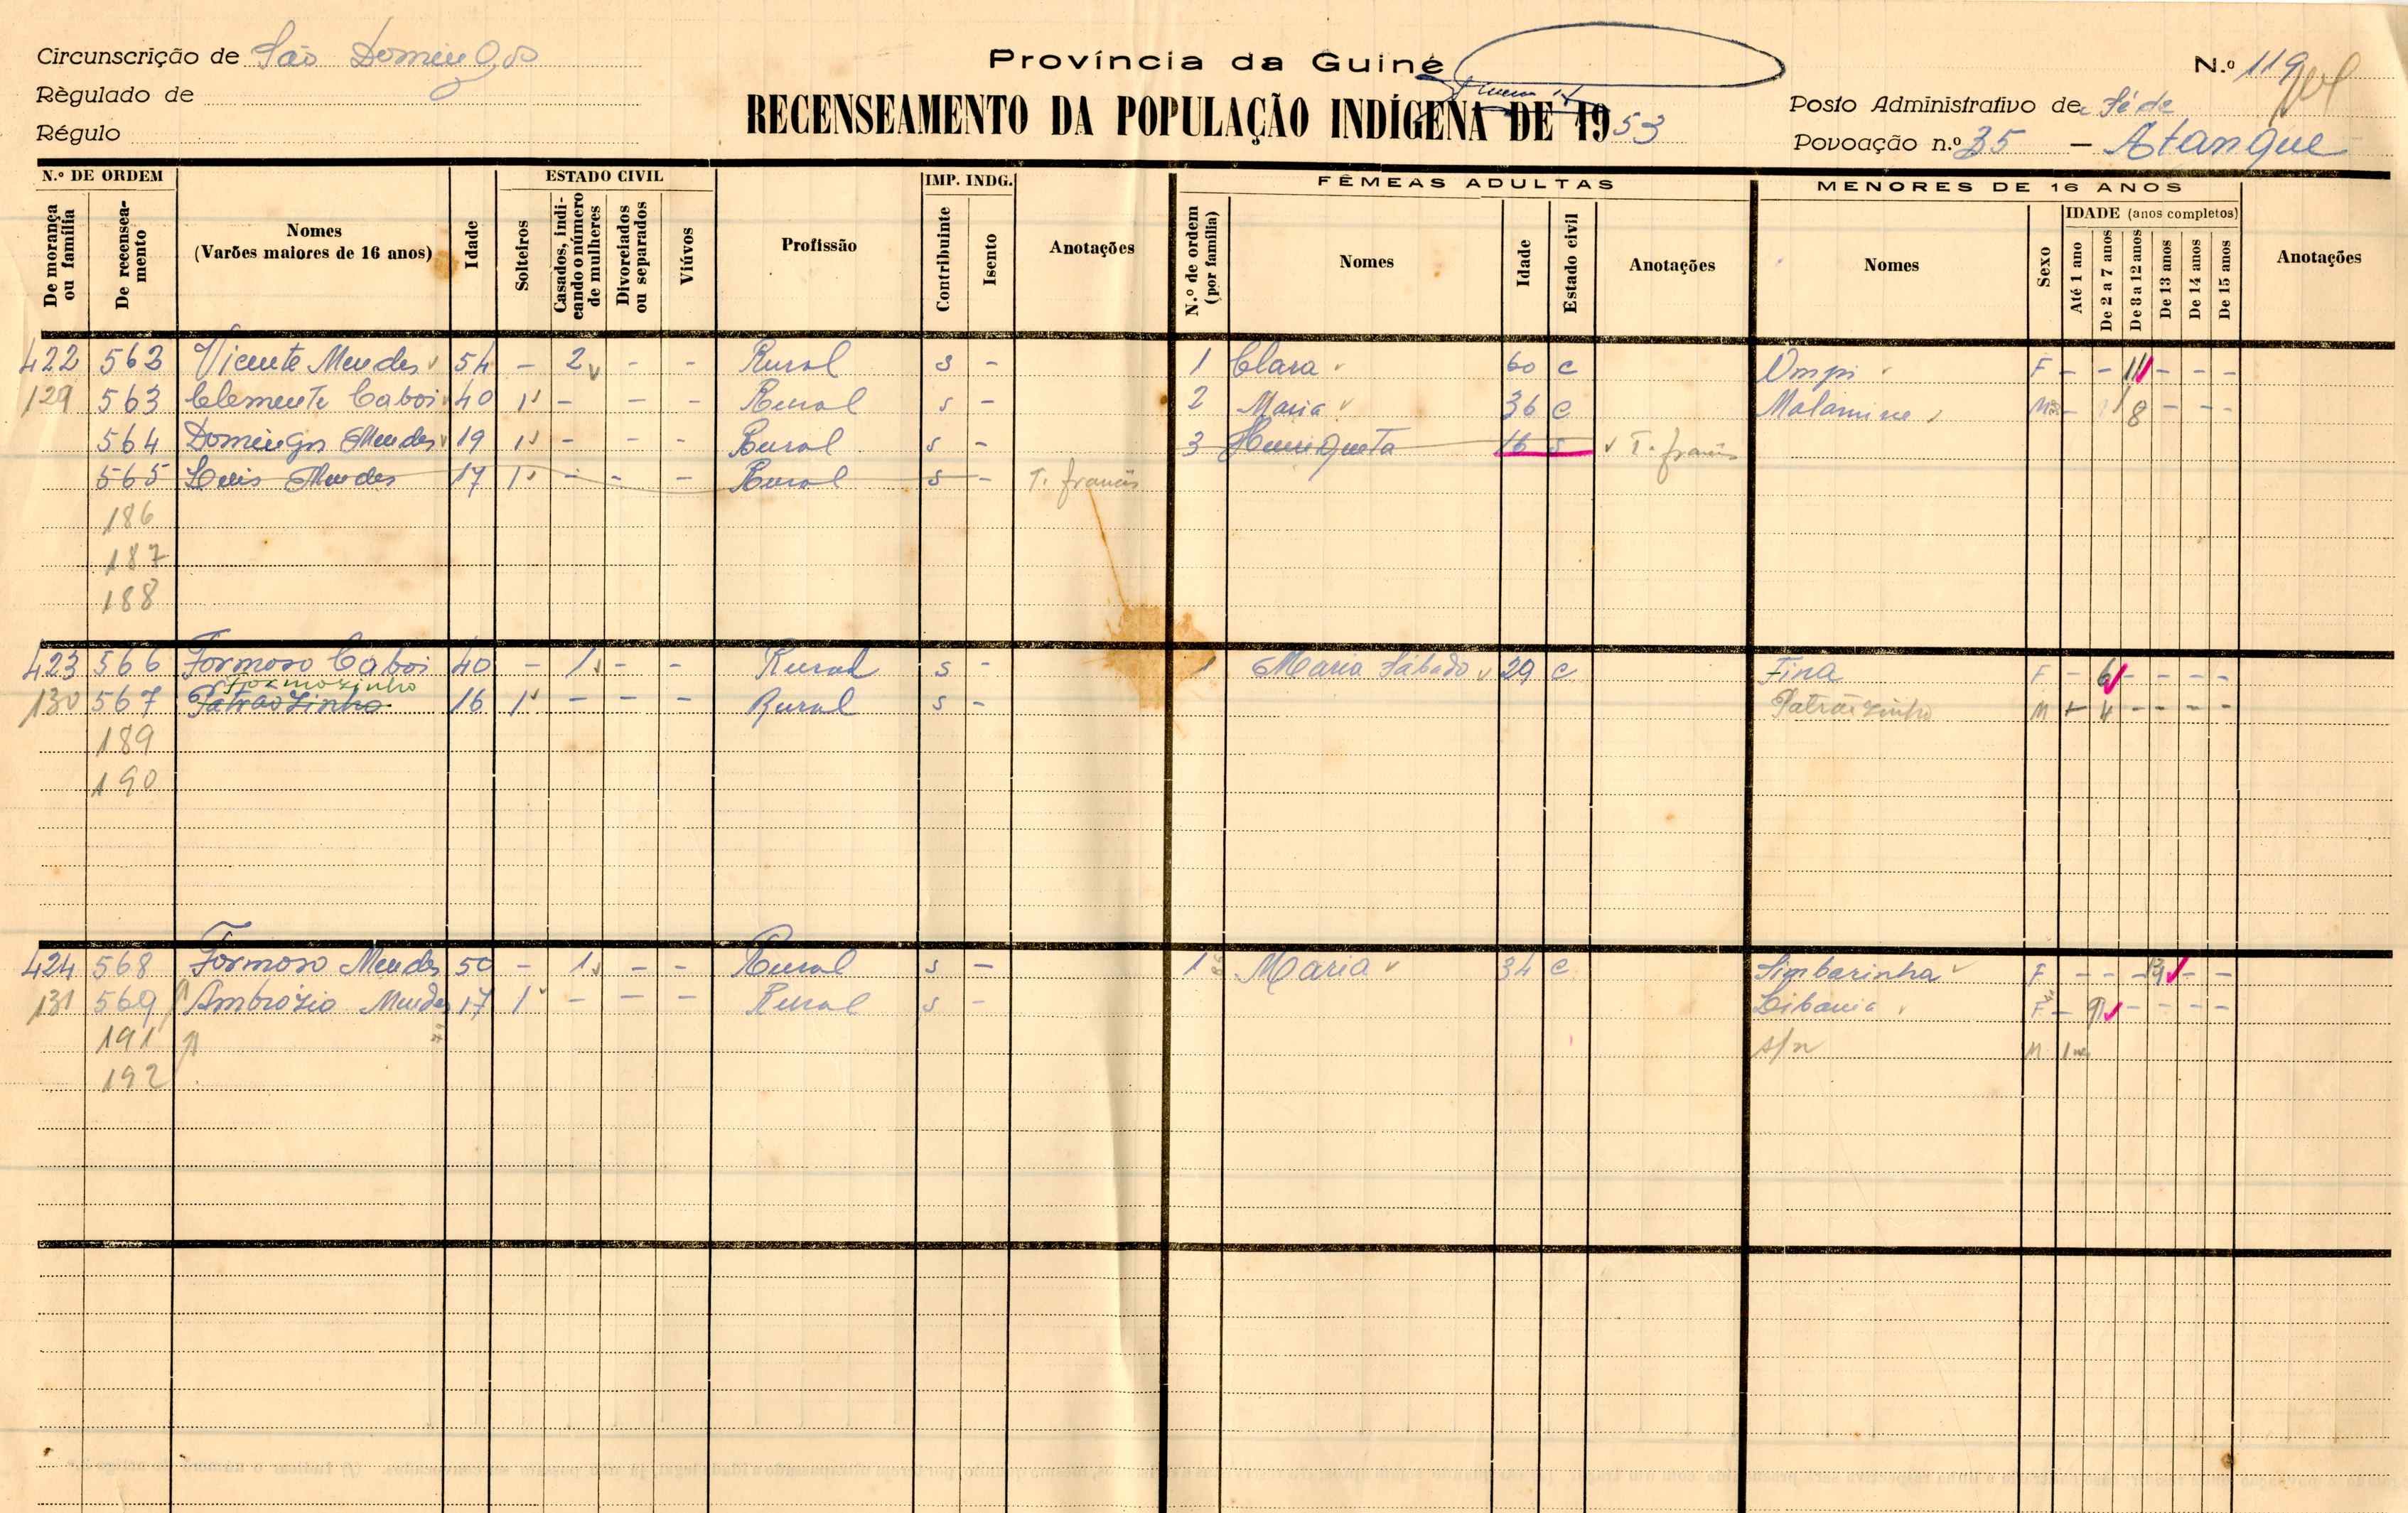 Circunscrição de São Domingos
Règulado de
Régulo
Província da Guiné
RECENSEAMENTO DA POPULAÇÃO INDÍGENA DE 1953
N.º 119
Posto Administrativo de Séde
Povoação n.º 35 — Atanque
N.º DE ORDEM
De morança ou família
De recenseamento
Nomes
(Varões maiores de 16 anos)
Idade
ESTADO CIVIL
Solteiros
Casados, indicando o número de mulheres
Divorciados ou separados
Viúvos
Profissão
IMP. INDG.
Contribuinte
Isento
Anotações
FÊMEAS ADULTAS
N.º de ordem (por família)
Nomes
Idade
Estado civil
Anotações
MENORES DE 16 ANOS
Nomes
Sexo
IDADE (anos completos)
Até 1 ano
De 2 a 7 anos
De 8 a 12 anos
De 13 anos
De 14 anos
De 15 anos
Anotações
422 563 Vicente Mendes 54 - 2 - - Rural s - 1 Clara 60 c Ompi F - - 11 - - -
129 563 Clemente Caboi 40 1 - - - Rural s - 2 Maria 36 c Malamine M - 8 - - -
564 Domingos Mendes 19 1 - - - Rural s - 3 Henriqueta 16 s T. francês
565 Luis Mendes 17 1 - - - Rural s - T. francês
186
187
188
423 566 Formoso Caboi 40 - 1 - - Rural s - 1 Maria Sábado 29 c Fina F - 6 - - - -
Formozinho
130 567 Patrãozinho 16 1 - - - Rural s - Patrãozinho M - 4 - - - -
189
190
424 568 Formoso Mendes 50 - 1 - - Rural s - 1 Maria 34 c Simbarinha F - - - - -
131 569 Ambrózio Mendes 17 1 - - - Rural s - Libania F - - - - -
191 s/n M 1
192